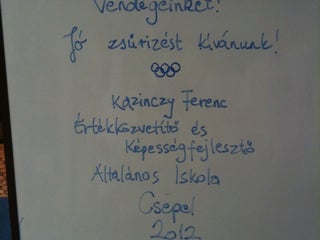 Vendégeinket!
Jó zsűrizést kívánunk!
Kazinczy Ferenc
Értékközvetítő és
Képességfejlesztő
Általános Iskola
Csepel
2012